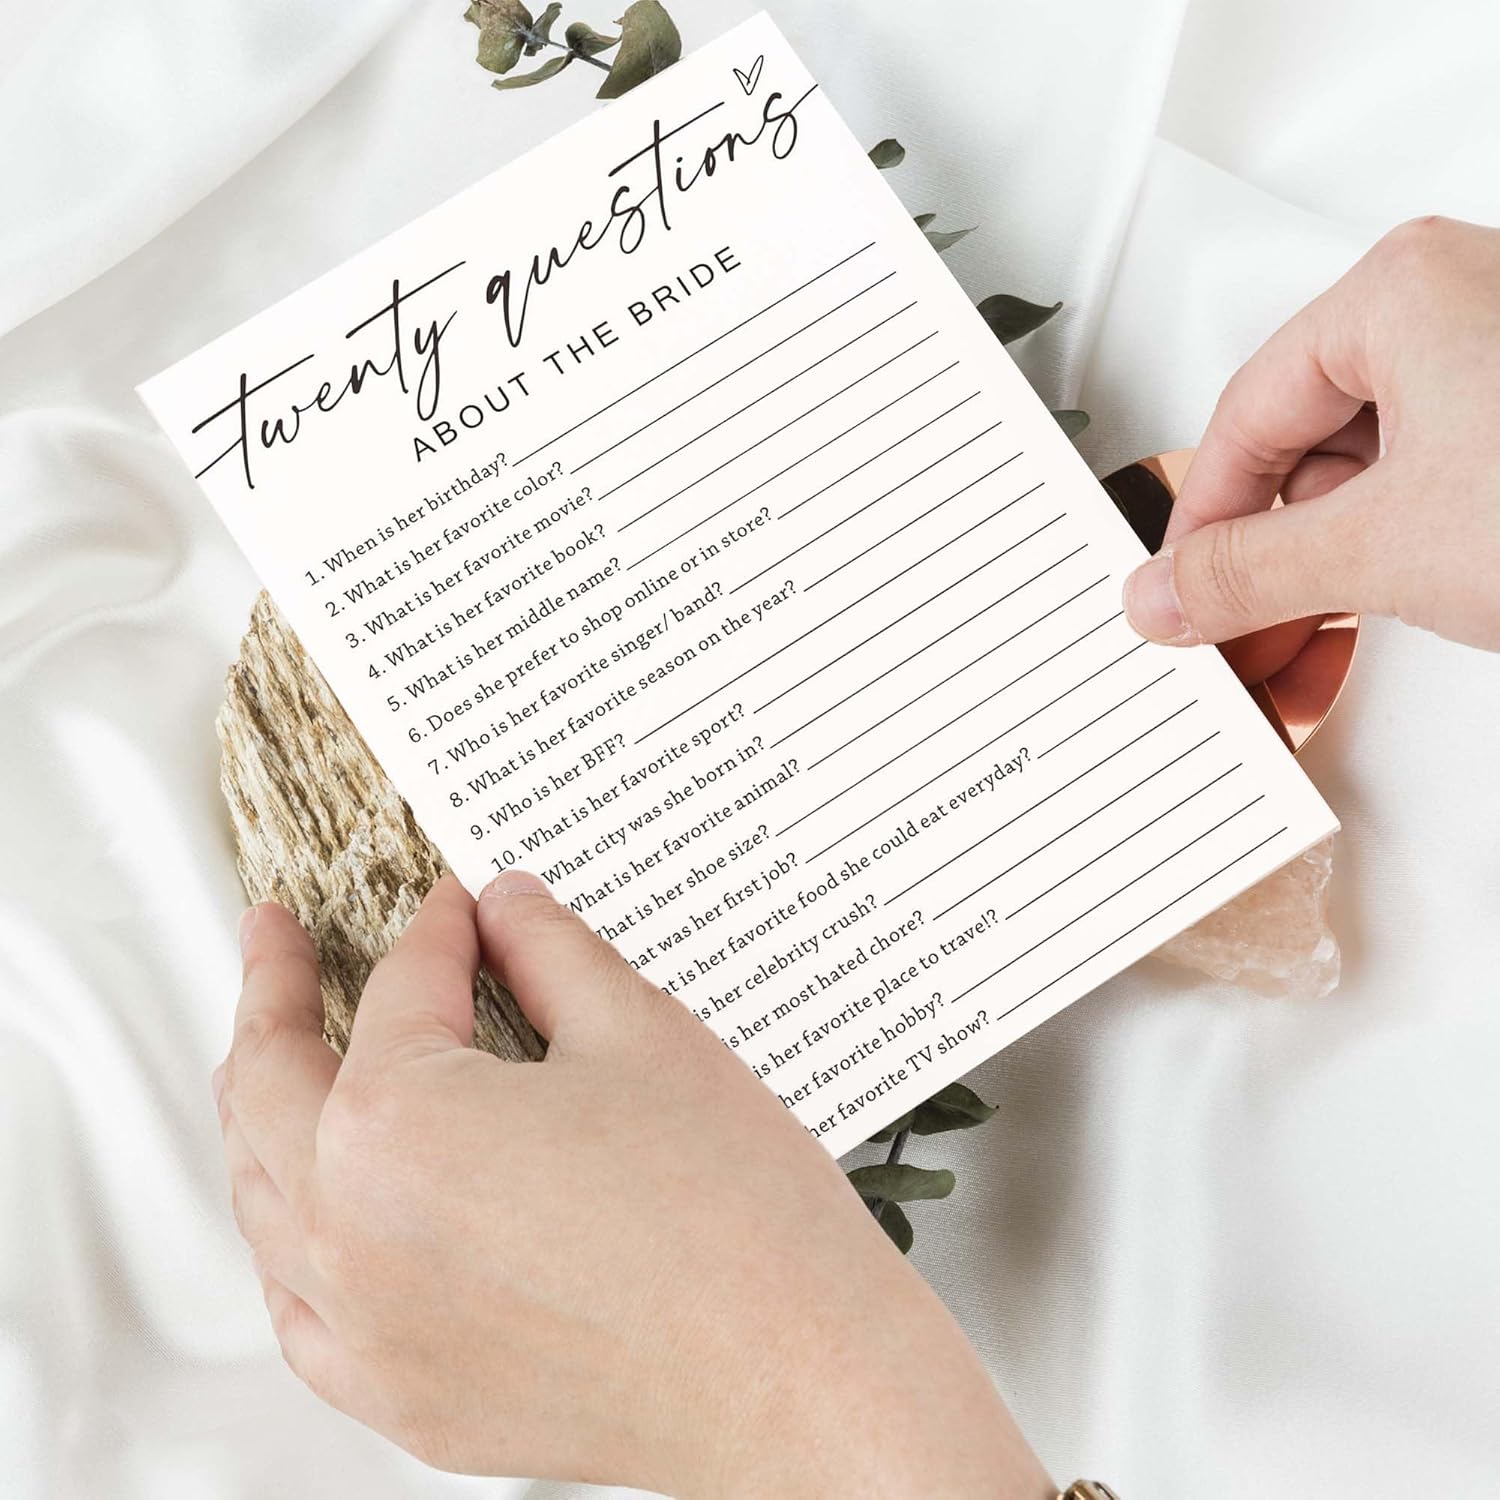 twenty questions
ABOUT THE BRIDE
1. When is her birthday?
2. What is her favorite color?
3. What is her favorite movie?
4. What is her favorite book?
5. What is her middle name?
6. Does she prefer to shop online or in store?
7. Who is her favorite singer/ band?
8. What is her favorite season on the year?
9. Who is her BFF?
10. What is her favorite sport?
What city was she born in?
What is her favorite animal?
What is her shoe size?
What was her first job?
is her favorite food she could eat everyday?
is her celebrity crush?
is her most hated chore?
is her favorite place to travel?
her favorite hobby?
her favorite TV show?